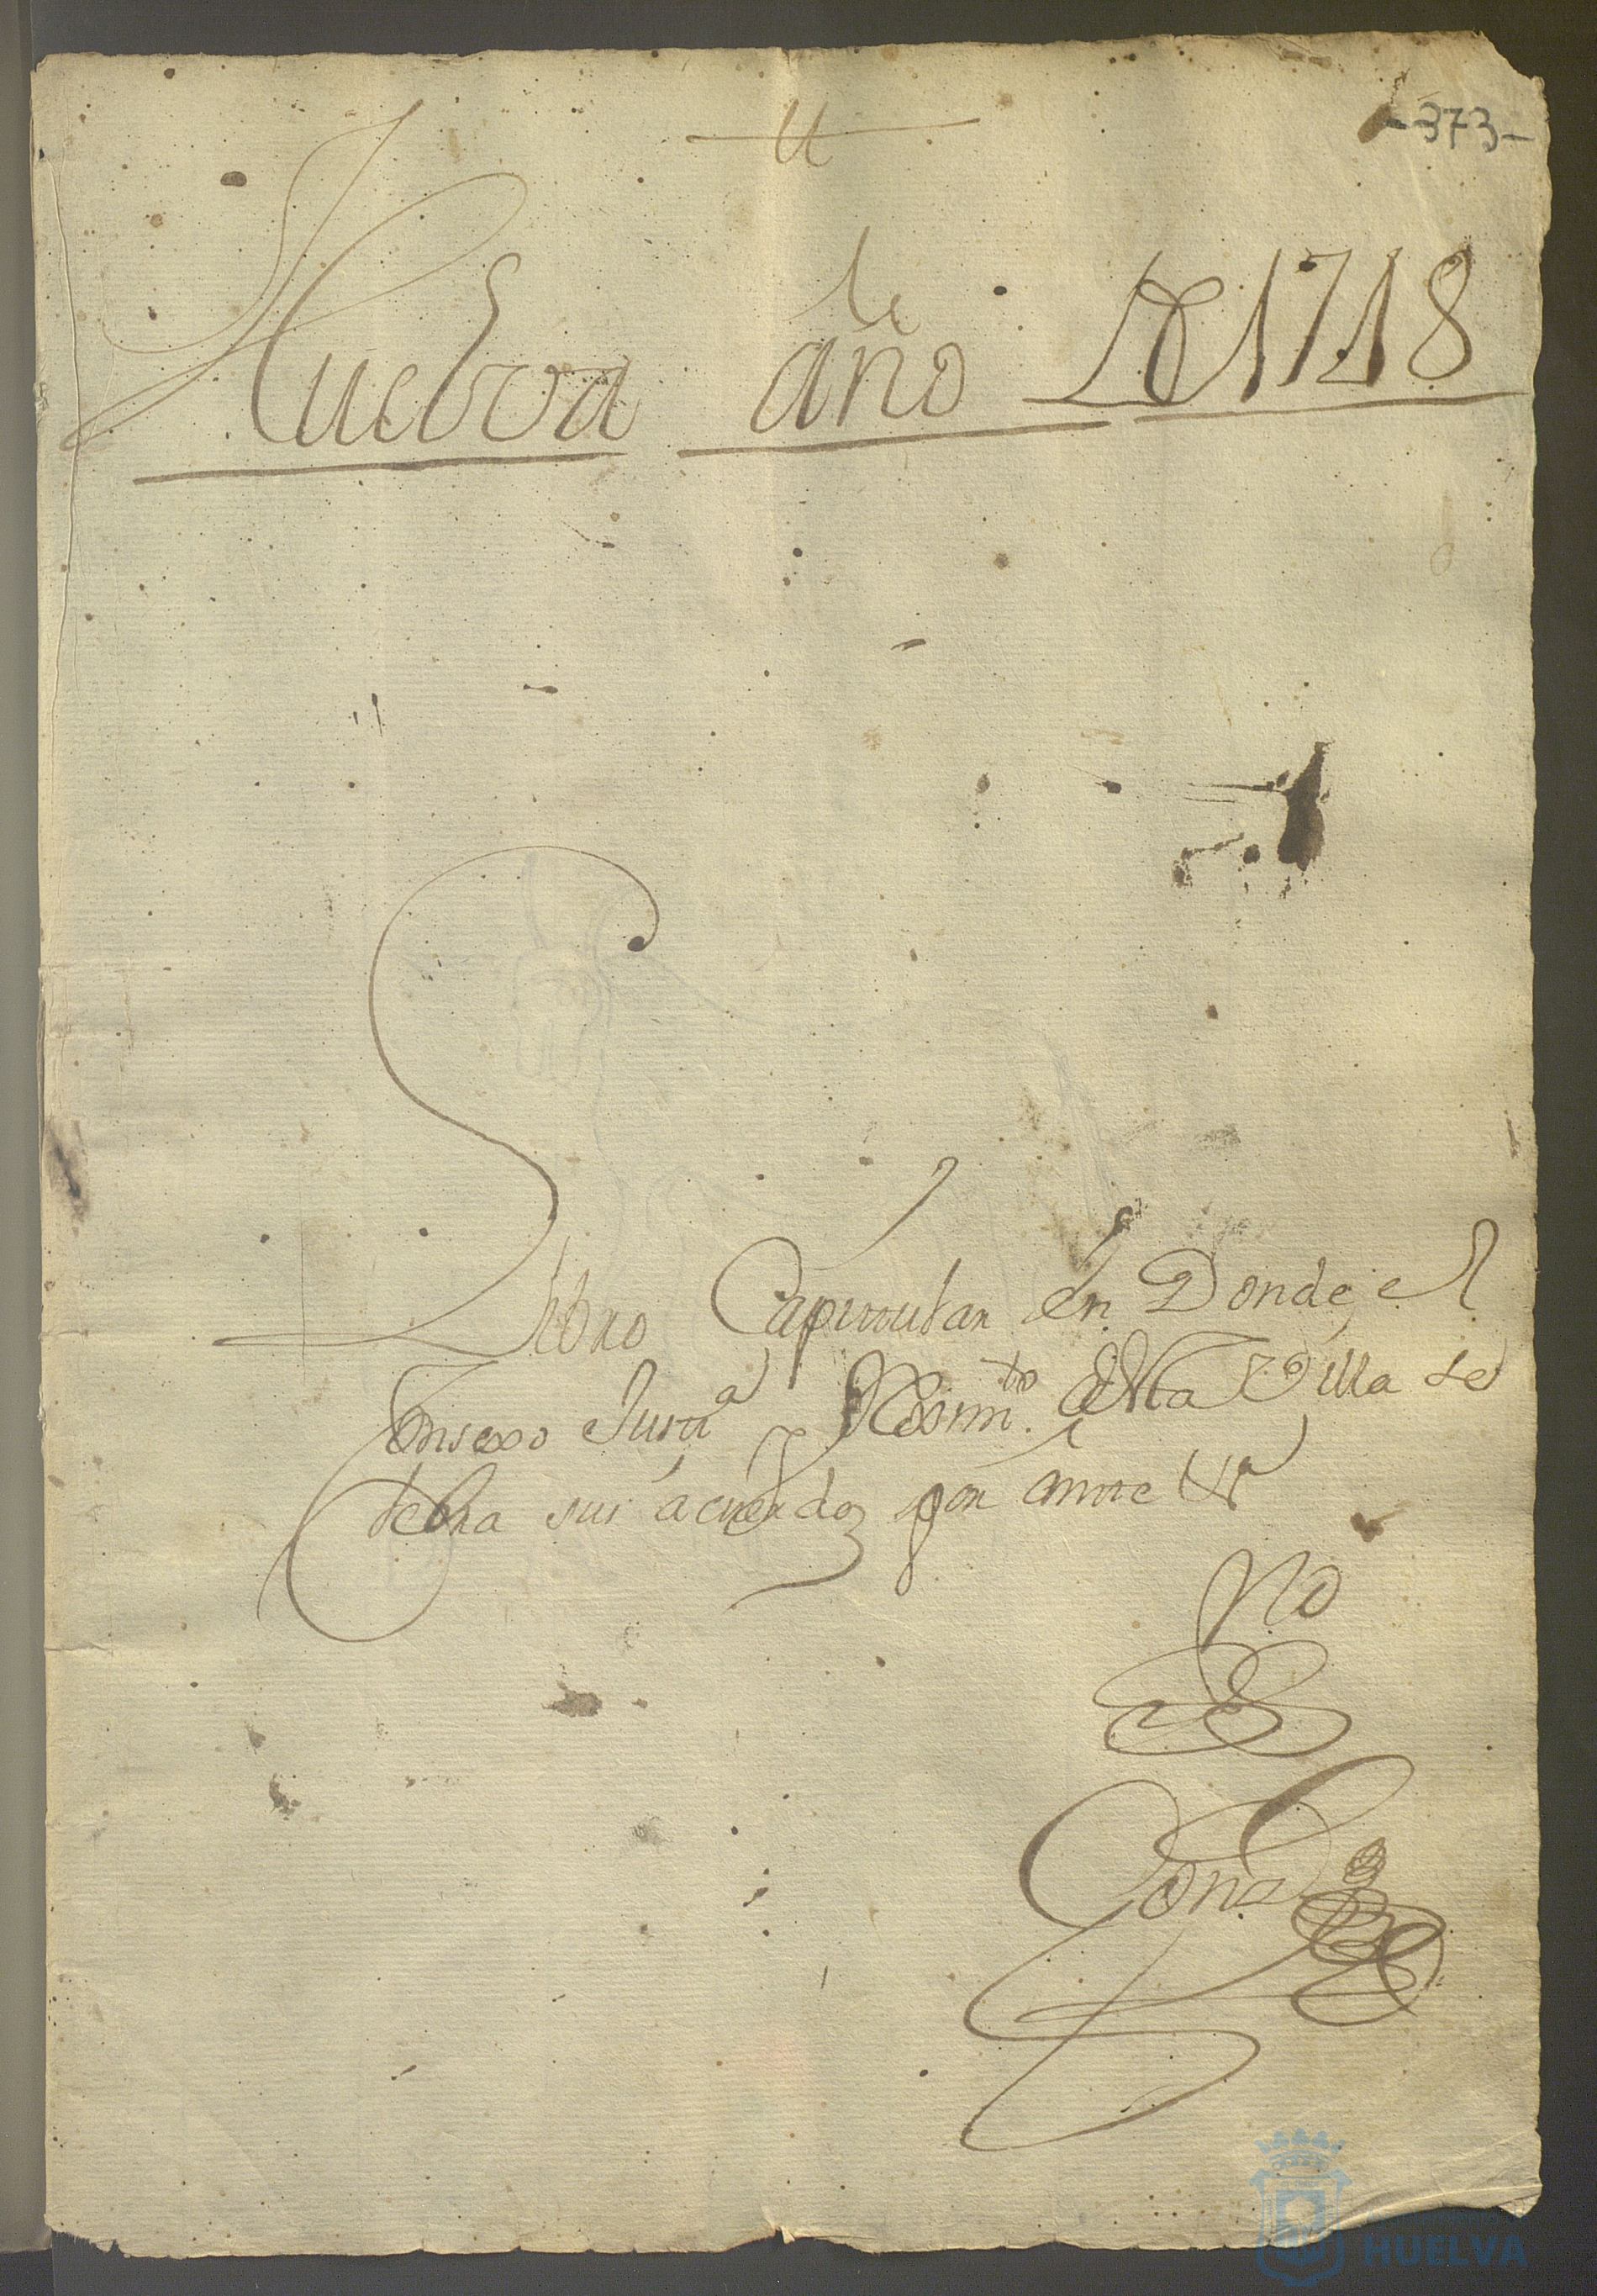 -373-
Huelva año de 1718
Libro Capitular en Donde el
Consexo Justª y Reximto. desta Villa se
lebra sus acuerdos por ante
No
HUELVA